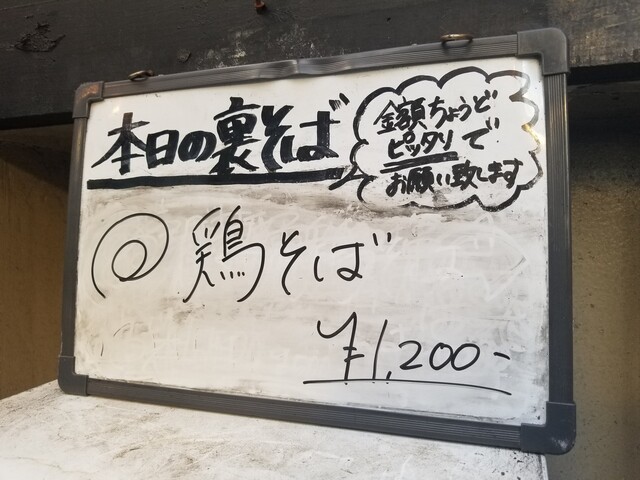 本日の裏そば
金額ちょうど
ピッタリで
お願い致します
◎鶏そば
¥1,200-